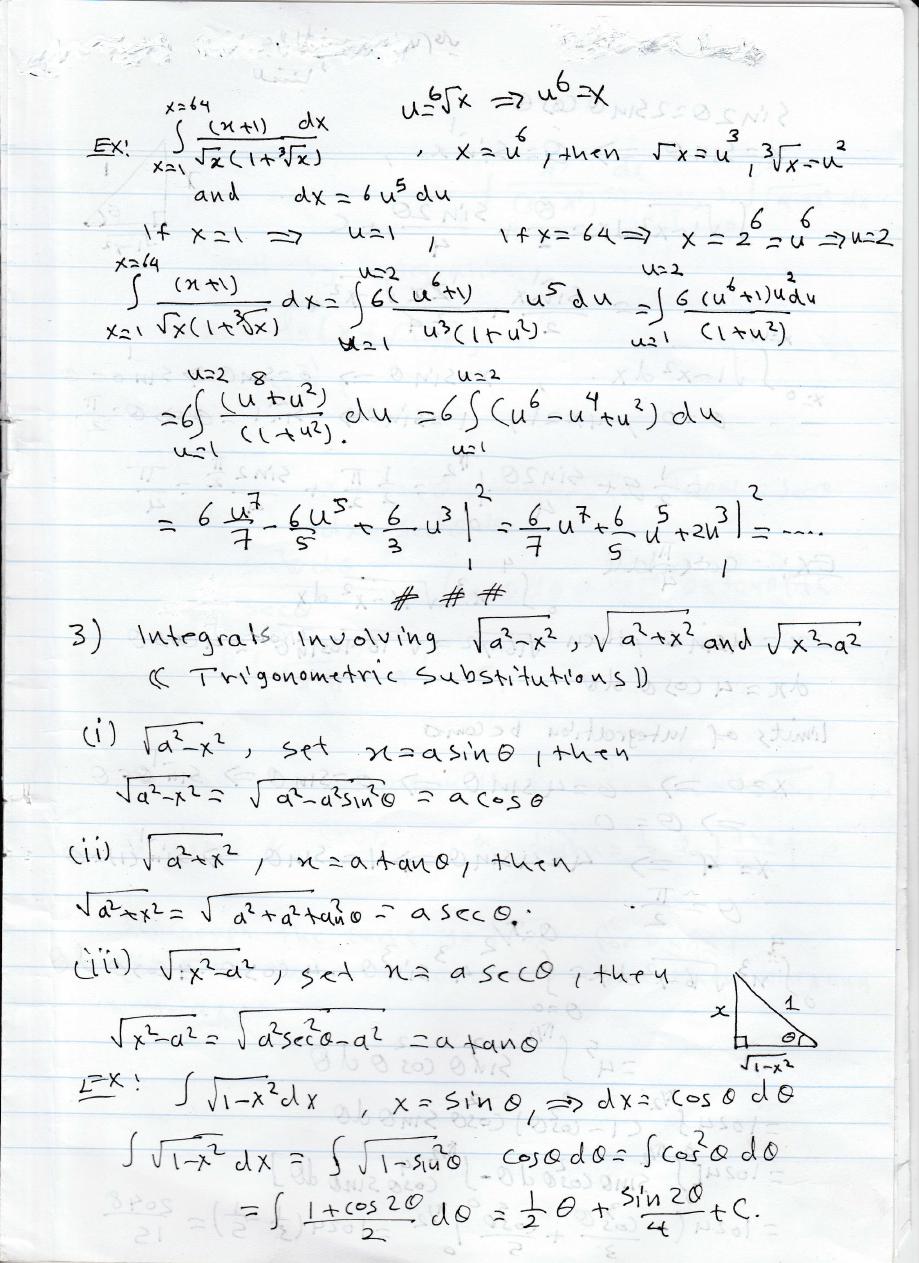 u=⁶√x ⇒ u⁶=x
Ex: ∫_{x=1}^{x=64} (x+1) dx / √x(1+³√x) , x=u⁶, then √x=u³, ³√x=u²
and dx=6u⁵du
If x=1 ⇒ u=1 , If x=64 ⇒ x=2⁶=u⁶ ⇒ u=2
∫_{x=1}^{x=64} (x+1) / √x(1+³√x) dx = ∫_{u=1}^{u=2} 6(u⁶+1) / u³(1+u²) u⁵du = ∫_{u=1}^{u=2} 6(u⁶+1)u²du / (1+u²)
=6∫_{u=1}^{u=2} (u⁸+u²) / (1+u²) du =6∫_{u=1}^{u=2} (u⁶-u⁴+u²)du
= 6 u⁷/7 - 6u⁵/5 + 6/3 u³|₁² = 6/7 u⁷+6/5 u⁵+2u³|₁² = ....
# # #
3) Integrals Involving √a²-x², √a²+x² and √x²-a²
(( Trigonometric Substitutions ))
(i) √a²-x² , set x=asinθ, then
√a²-x² = √a²-a²sin²θ = acosθ
(ii) √a²+x² , x=atanθ, then
√a²+x² = √a²+a²tan²θ = asecθ.
(iii) √x²-a², set x=asecθ, then
√x²-a² = √a²sec²θ-a² =atanθ
x 1 θ √1-x²
Ex: ∫√1-x²dx , x=sinθ, ⇒ dx=cosθ dθ
∫√1-x² dx = ∫√1-sin²θ cosθdθ=∫cos²θ dθ
=∫ 1+cos2θ / 2 dθ = 1/2 θ + sin2θ/4 +C.